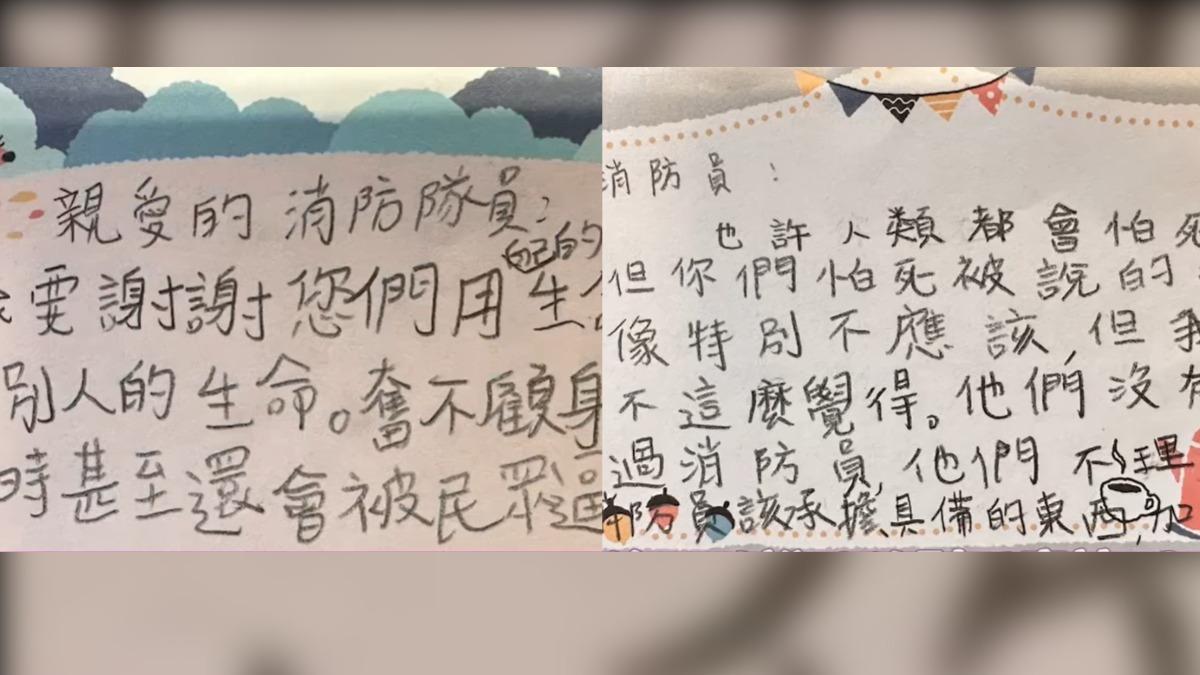 親愛的消防隊員:
自己的
要謝謝您們用生
別人的生命。奮不顧身
時甚至還會被民眾
消防員:
也許人類都會怕死
但你們怕死被說的
像特別不應該,但我
不這麼覺得。他們沒有
過消防員,他們不理
防員該承擔、具備的東西,如